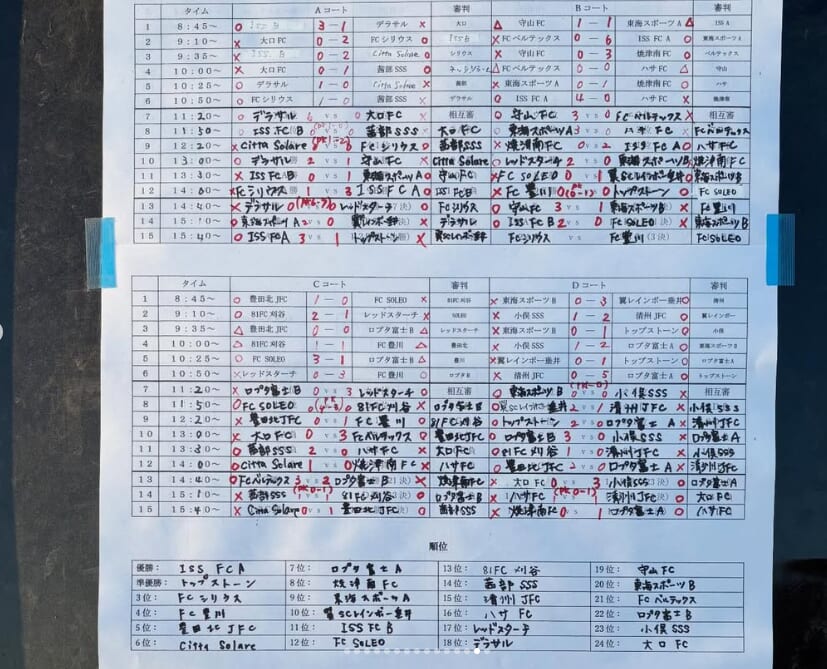 タイム Aコート 審判 Bコート 審判
1 8:45～ ○ 3－1 デラサル × 大口 △ 守山FC 1－1 東海スポーツA △ ISS A
2 9:10～ × 大口FC 0－2 FCシリウス ○ × FCベルテックス 0－6 ISS FC A ○ 東海スポーツA
3 9:35～ × 0－2 Citta Solare ○ シリウス × 守山FC 0－3 焼津南FC ○ ベルテックス
4 10:00～ × 大口FC 0－1 茜部SSS ○ △ FCベルテックス 0－0 ハサFC △ 守山
5 10:25～ ○ デラサル 1－0 Citta Solare × 茜部 × 東海スポーツA 0－1 焼津南FC ○ ハサ
6 10:50～ ○ FCシリウス 1－0 茜部SSS × デラサル ○ ISS FC A 4－0 ハサFC × 焼津南
7 11:20～ ○ デラサル vs 0 大口FC × 相互審 ○ 守山FC 3 vs 0 FCベルテックス × 相互審
8 11:50～ ○ ISS FC B 茜部SSS × 大口FC ○ 東海スポーツA 3 vs 0 ハサFC × FCベルテックス
9 12:20～ × Citta Solare FCシリウス ○ 茜部SSS × 焼津南FC 0 vs 2 ISS FC A ○ ハサFC
10 13:00～ ○ デラサル 2 vs 1 守山FC × Citta Solare ○ レッドスターチ 2 vs 0 東海スポーツB × 焼津南FC
11 13:30～ × ISS FC B 0 vs 1 東海スポーツA ○ 守山FC × FC SOLEO 0 vs 1 翼SCレインボー垂井 ○ 東海スポーツB
12 14:00～ × FCシリウス 1 vs 3 ISS FC A ○ ISS FC B × FC豊川 トップストーン ○ FC SOLEO
13 14:40～ × デラサル 0 (PK6-7) 0 レッドスターチ ○ FCシリウス ○ 守山FC 3 vs 1 東海スポーツB × FC豊川
14 15:10～ ○ 東海スポーツA 2 vs 0 翼レインボー垂井 × デラサル ○ ISS FC B 2 vs 0 FC SOLEO × 東海スポーツB
15 15:40～ ○ ISS FC A 3 vs 1 トップストーン × 翼SCレインボー垂井 FCシリウス vs FC豊川 (3決) FC SOLEO
タイム Cコート 審判 Dコート 審判
1 8:45～ ○ 豊田北JFC 1－0 FC SOLEO × 81FC刈谷 × 東海スポーツB 0－3 翼レインボー垂井 ○ 清州
2 9:10～ ○ 81FC刈谷 2－1 レッドスターチ × SOLEO × 小俣SSS 1－2 清州JFC ○ 翼レインボー
3 9:35～ △ 豊田北JFC 0－0 ロプタ富士B △ レッドスターチ × 東海スポーツB 0－1 トップストーン ○ 小俣
4 10:00～ △ 81FC刈谷 1－1 FC豊川 △ 豊田北 × 小俣SSS 1－2 ロプタ富士A ○ 東海スポーツB
5 10:25～ ○ FC SOLEO 3－1 ロプタ富士B △ 豊川 × 翼レインボー垂井 0－1 トップストーン ○ ロプタ富士A
6 10:50～ × レッドスターチ 0－3 FC豊川 ○ ロプタB × 清州JFC 0－5 ロプタ富士A ○ トップストーン
7 11:20～ × ロプタ富士B 0 vs 3 レッドスターチ ○ 相互審 ○ 東海スポーツB 小俣SSS × 相互審
8 11:50～ ○ FC SOLEO 81FC刈谷 × ロプタ富士B ○ 翼SCレインボー垂井 2 vs 1 清州JFC × 小俣SSS
9 12:20～ × 豊田北JFC 0 vs 1 FC豊川 ○ 81FC刈谷 ○ トップストーン 2 vs 0 ロプタ富士A × 清州JFC
10 13:00～ × 大口FC 0 vs 3 FCベルテックス ○ 豊田北JFC ○ ロプタ富士B 3 vs 0 小俣SSS × ロプタ富士A
11 13:30～ ○ 茜部SSS 2 vs 0 ハサFC × 大口FC ○ 81FC刈谷 1 vs 0 清州JFC × 小俣SSS
12 14:00～ ○ Citta Solare 1 vs 0 焼津南FC × ハサFC ○ 豊田北JFC 2 vs 0 ロプタ富士A × 清州JFC
13 14:40～ ○ FCベルテックス 3 vs 2 ロプタ富士B × 焼津南FC × 大口FC 0 vs 3 小俣SSS ○ ロプタ富士A
14 15:10～ × 茜部SSS (PK0-1) 81FC刈谷 ○ ロプタ富士B × ハサFC 清州JFC ○ 大口FC
15 15:40～ × Citta Solare 0 vs 1 豊田北JFC ○ 茜部SSS × 焼津南FC 0 vs 1 ロプタ富士A ○ ハサFC
順位
優勝： ISS FC A 7位： ロプタ富士A 13位： 81FC 刈谷 19位： 守山FC
準優勝： トップストーン 8位： 焼津南FC 14位： 茜部SSS 20位： 東海スポーツB
3位： FCシリウス 9位： 東海スポーツA 15位： 清州JFC 21位： FCベルテックス
4位： FC豊川 10位： 翼SCレインボー垂井 16位： ハサFC 22位： ロプタ富士B
5位： 豊田北JFC 11位： ISS FC B 17位： レッドスターチ 23位： 小俣SSS
6位： Citta Solare 12位： FC SOLEO 18位： デラサル 24位： 大口FC